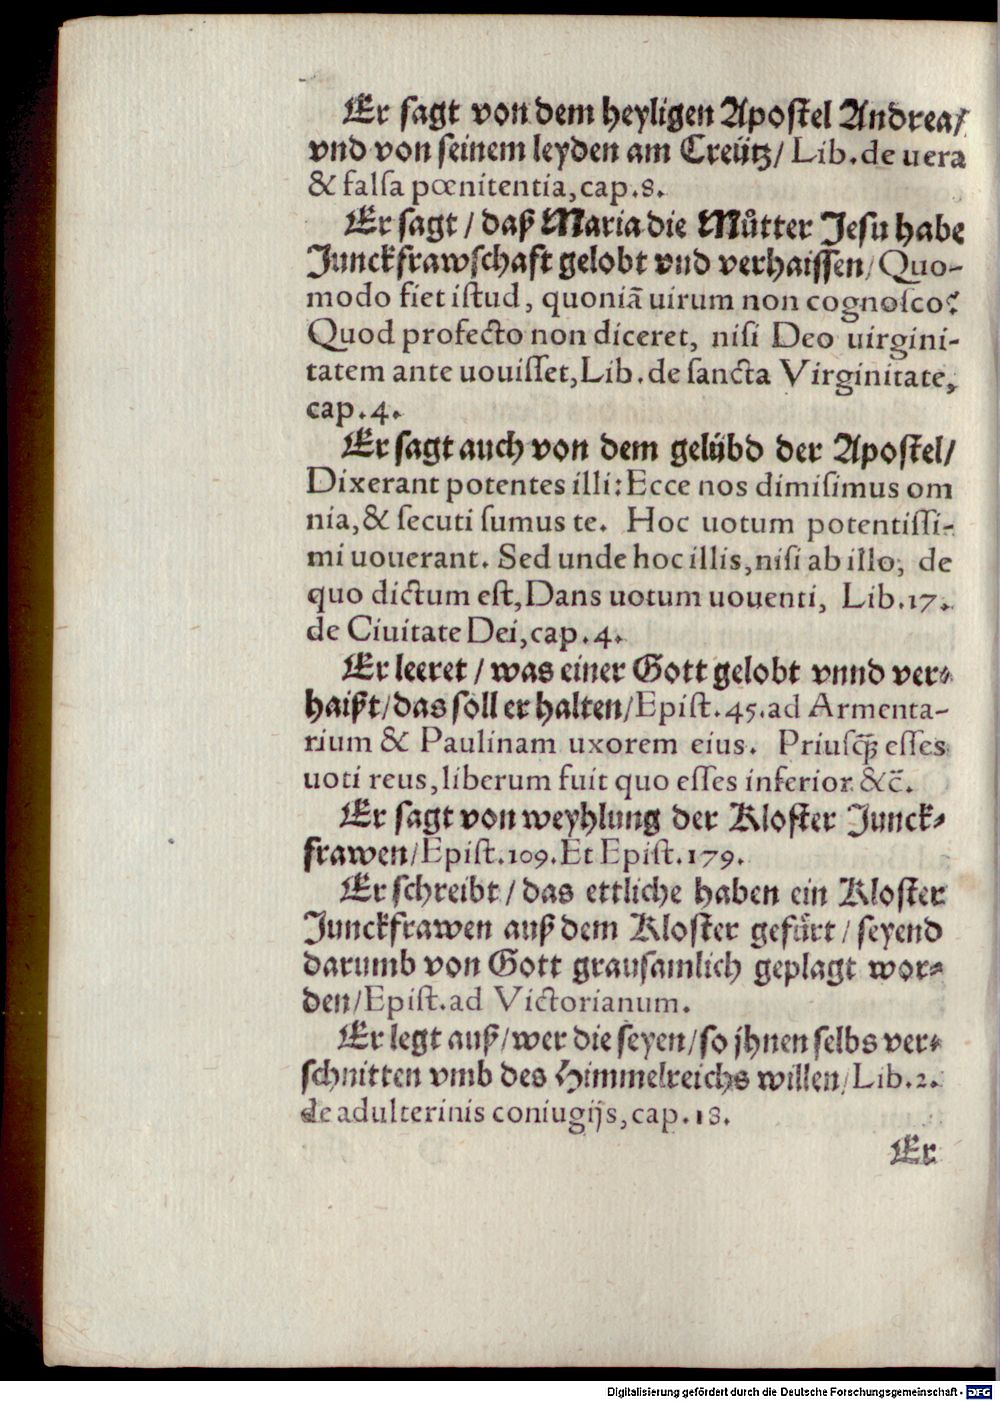 Er sagt von dem heyligen Apostel Andrea/
vnd von seinem leyden am Creütz/ Lib. de uera
& falsa pœnitentia, cap. 8.
Er sagt / daß Maria die Můtter Jesu habe
Junckfrawschaft gelobt vnd verhaissen/ Quo-
modo fiet istud, quoniã uirum non cognosco?
Quod profecto non diceret, nisi Deo uirgini-
tatem ante uouisset, Lib. de sancta Virginitate,
cap. 4.
Er sagt auch von dem gelübd der Apostel/
Dixerant potentes illi: Ecce nos dimisimus om
nia, & secuti sumus te. Hoc uotum potentissi-
mi uouerant. Sed unde hoc illis, nisi ab illo, de
quo dictum est, Dans uotum uouenti, Lib. 17.
de Ciuitate Dei, cap. 4.
Er leeret / was einer Gott gelobt vnnd ver-
haißt/ das soll er halten/ Epist. 45. ad Armenta-
rium & Paulinam uxorem eius. Priusq̃; esses
uoti reus, liberum fuit quo esses inferior &c̃.
Er sagt von weyhlung der Kloster Junck-
frawen/ Epist. 109. Et Epist. 179.
Er schreibt / das ettliche haben ein Kloster
Junckfrawen auß dem Kloster gefürt / seyend
darumb von Gott grausamlich geplagt wor-
den/ Epist. ad Victorianum.
Er legt auß/ wer die seyen/ so jhnen selbs ver-
schnitten vmb des Himmelreichs willen/ Lib. 2.
de adulterinis coniugijs, cap. 18.
Er
Digitalisierung gefördert durch die Deutsche Forschungsgemeinschaft - DFG